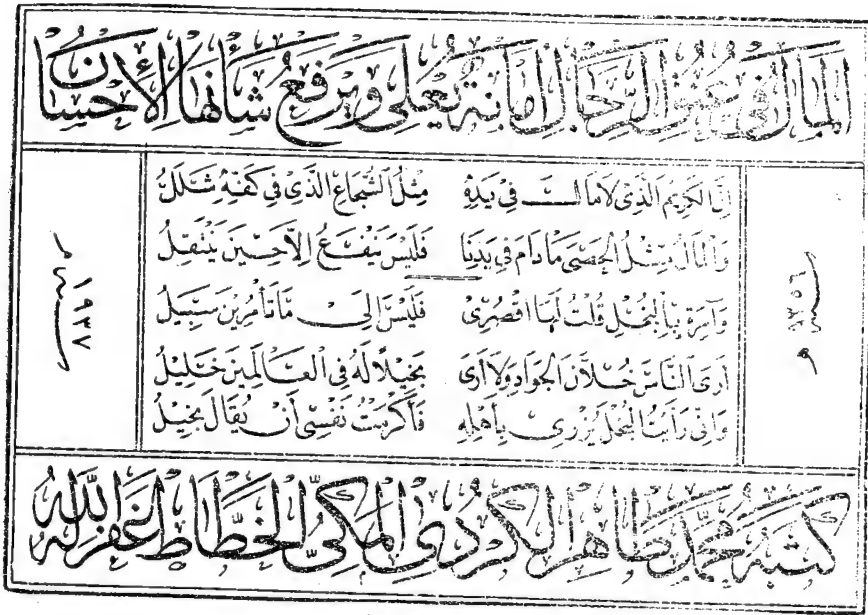 المال في عنق الرجال أمانة يعلي ويرفع شأنها الإحسان
إن الكريم الذي لا مال في يده مثل الشجاع الذي في كفه شلل
والمال مثل الحصى ما دام في يدنا فليس ينفع إلا حين ينتقل
وآمرة بالبخل قلت لها اقصري فليس إلى ما تأمرين سبيل
أرى الناس خلان الجواد ولا أرى بخيلا له في العالمين خليل
وإني رأيت البخل يزري بأهله فأكرمت نفسي أن يقال بخيل
سنة ١٣٥٦ هـ
سنة ١٩٣٧ م
كتبه محمد طاهر الكردي المكي الخطاط غفر الله له